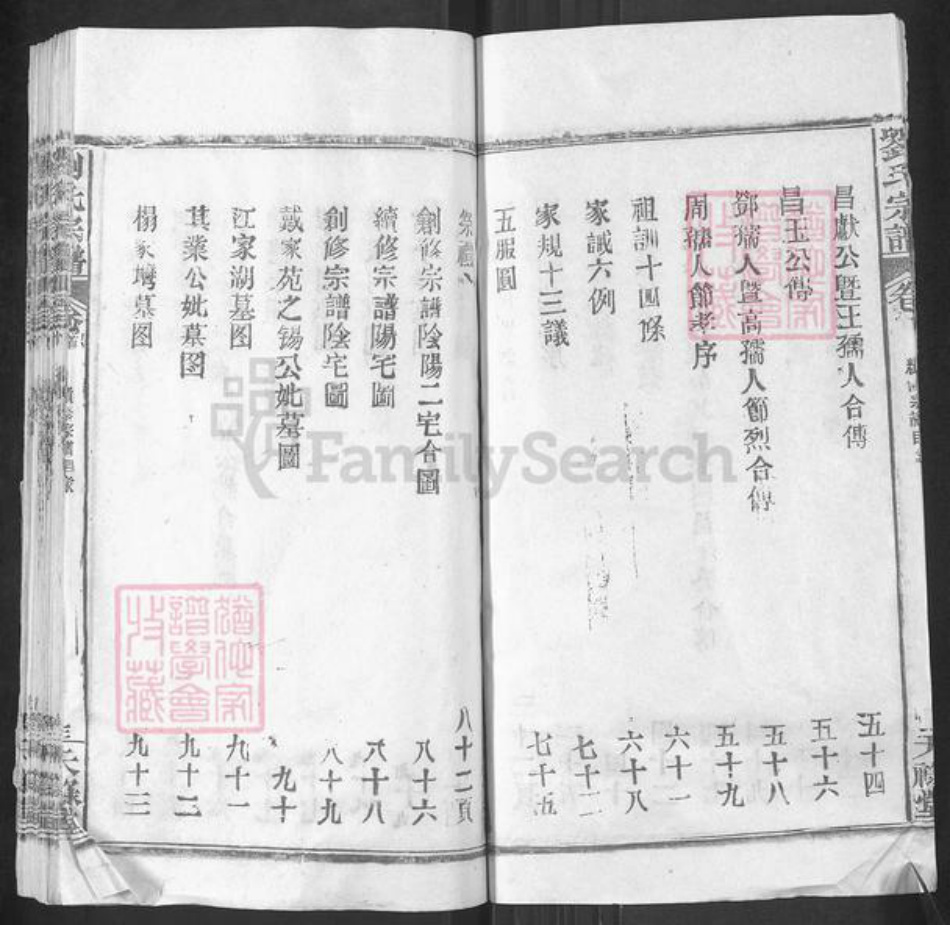 劉氏宗譜
昌獻公暨王孺人合傳 五十四
昌玉公傳 五十六
鄧孺人暨高孺人節烈合傳 五十八
周孺人節孝序 五十九
祖訓十四條 六十一
家誡六例 六十八
家規十三議 七十二
五服圓 七十五
祭禮 八十二頁
創修宗譜陰陽二宅合圖 八十六
續修宗譜陽宅圖 八十八
創修宗譜陰宅圖 八十九
戴家苑之錫公妣墓圖 九十
江家湖墓图 九十一
其業公妣墓图 九十二
楊家塆墓图 九十三
FamilySearch
譜學會
收藏